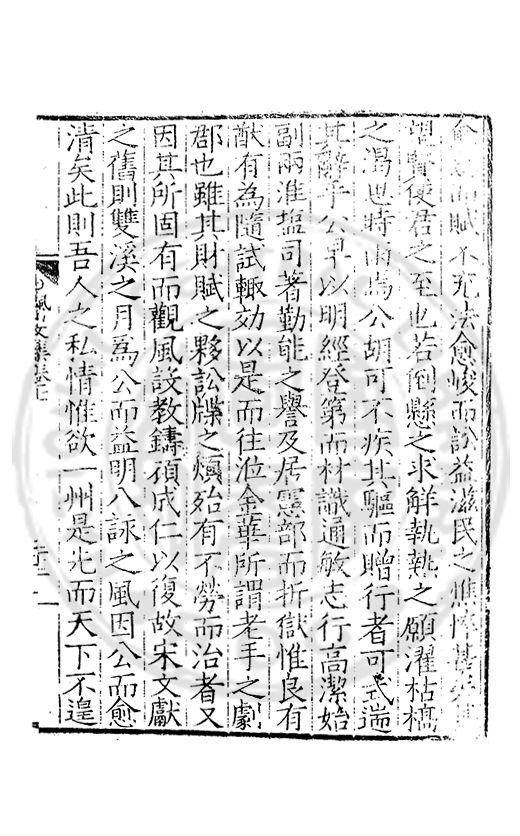 愈 而賦不充法愈峻而訟益滋民之憔悴甚矣其
望賢使君之至也若倒懸之求解執熱之願濯枯槁
之渴也時雨焉公胡可不疾其驅而贈行者可式遄
其辭乎公早以明經登第而材識通敏志行高潔始
副兩淮塩司著勤能之譽及居憲部而折獄惟良有
猷有為隨試輙効以是而往涖金華所謂老手之劇
郡也雖其財賦之夥訟牒之煩殆有不勞而治者又
因其所固有而觀風設教鑄頑成仁以復故宋文獻
之舊則雙溪之月為公而益明八詠之風因公而愈
清矣此則吾人之私情惟欲一州是先而天下不遑